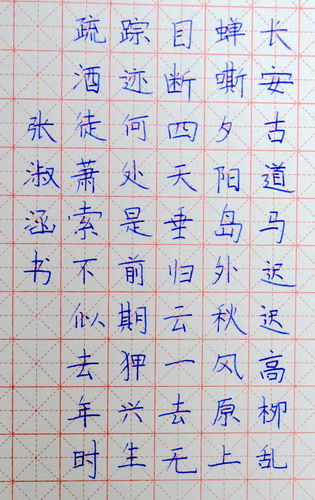 长安古道马迟迟高柳乱
蝉嘶夕阳岛外秋风原上
目断四天垂归云一去无
踪迹何处是前期狎兴生
疏酒徒萧索不似去年时
张淑涵书